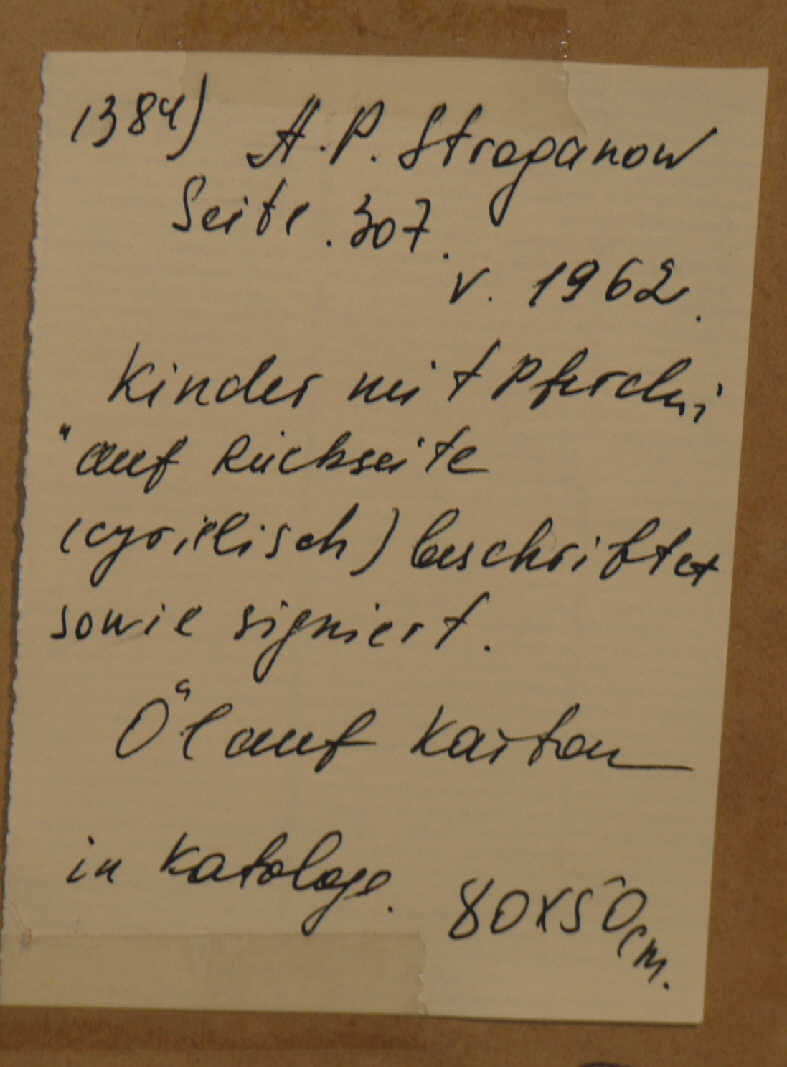 1384) A. P. Stroganow
Seite. 307.
v. 1962.
Kinder mit Pferden
"auf Rückseite
(cyrillisch) beschriftet
sowie signiert.
Öl auf Karton
in Kataloge. 80x50 cm.